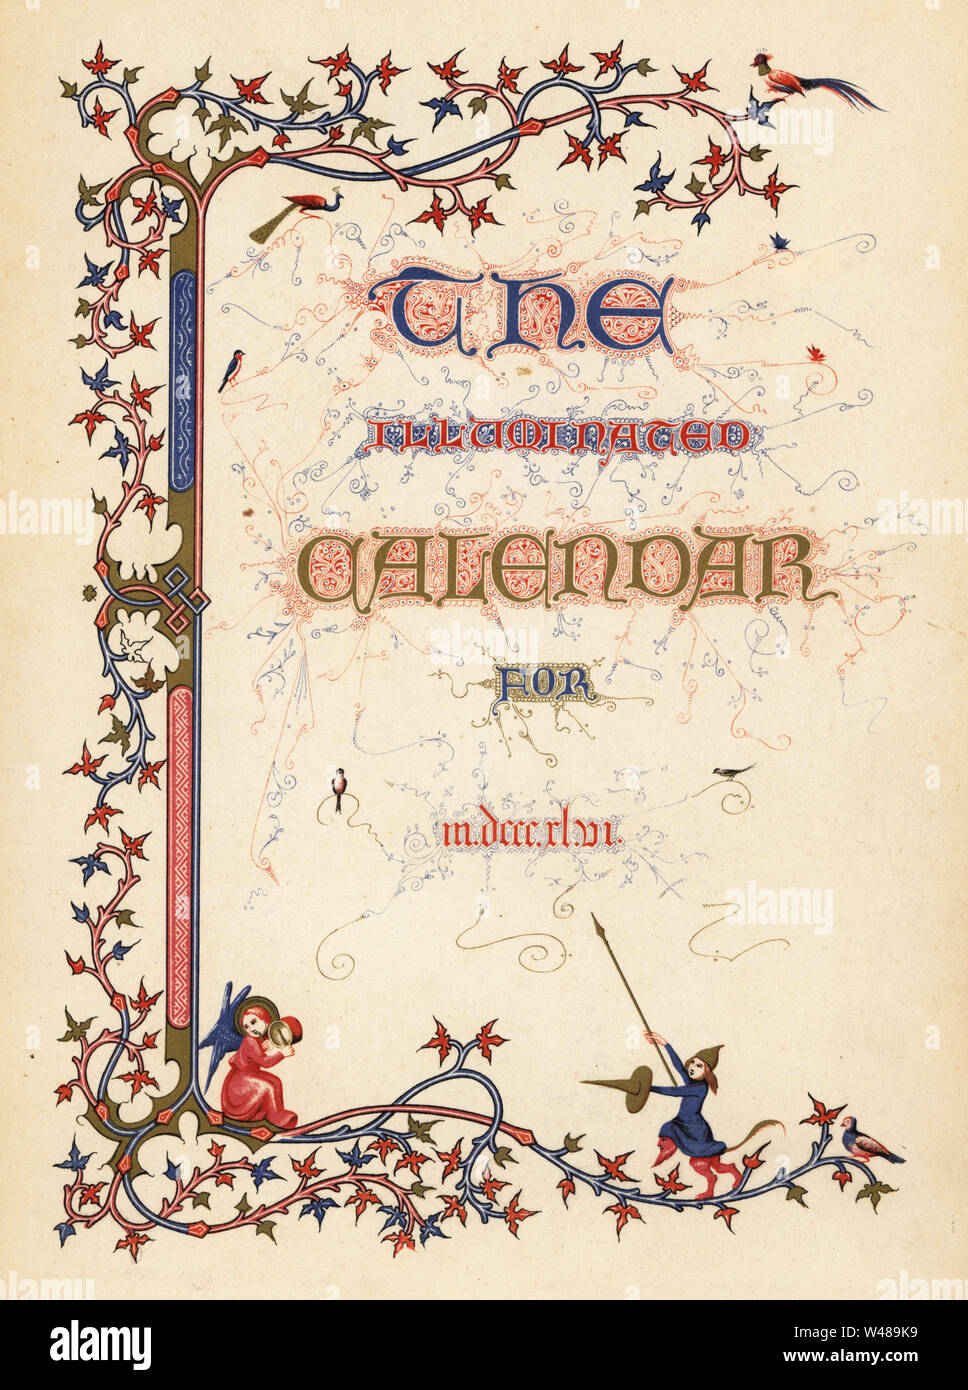 THE
ILLUMINATED
CALENDAR
FOR
m.dccc.xl.vi.
alamy
alamy
Image ID: W489K9
www.alamy.com